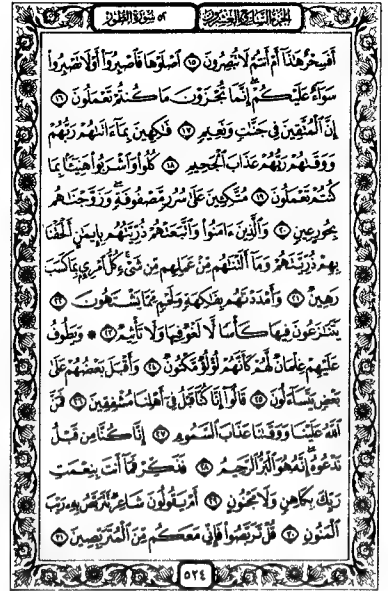 الجزء السابع والعشرون ٥٢ سورة الطور
أَفَسِحْرٌ هَٰذَا أَمْ أَنتُمْ لَا تُبْصِرُونَ ١٥ ٱصْلَوْهَا فَٱصْبِرُوٓا۟ أَوْ لَا تَصْبِرُوا۟
سَوَآءٌ عَلَيْكُمْ ۖ إِنَّمَا تُجْزَوْنَ مَا كُنتُمْ تَعْمَلُونَ ١٦
إِنَّ ٱلْمُتَّقِينَ فِى جَنَّٰتٍ وَنَعِيمٍ ١٧ فَٰكِهِينَ بِمَآ ءَاتَىٰهُمْ رَبُّهُمْ
وَوَقَىٰهُمْ رَبُّهُمْ عَذَابَ ٱلْجَحِيمِ ١٨ كُلُوا۟ وَٱشْرَبُوا۟ هَنِيٓـًٔۢا بِمَا
كُنتُمْ تَعْمَلُونَ ١٩ مُتَّكِـِٔينَ عَلَىٰ سُرُرٍ مَّصْفُوفَةٍ ۖ وَزَوَّجْنَٰهُم
بِحُورٍ عِينٍ ٢٠ وَٱلَّذِينَ ءَامَنُوا۟ وَٱتَّبَعَتْهُمْ ذُرِّيَّتُهُم بِإِيمَٰنٍ أَلْحَقْنَا
بِهِمْ ذُرِّيَّتَهُمْ وَمَآ أَلَتْنَٰهُم مِّنْ عَمَلِهِم مِّن شَىْءٍ ۚ كُلُّ ٱمْرِئٍۭ بِمَا كَسَبَ
رَهِينٌ ٢١ وَأَمْدَدْنَٰهُم بِفَٰكِهَةٍ وَلَحْمٍ مِّمَّا يَشْتَهُونَ ٢٢
يَتَنَٰزَعُونَ فِيهَا كَأْسًا لَّا لَغْوٌ فِيهَا وَلَا تَأْثِيمٌ ٢٣ ۞ وَيَطُوفُ
عَلَيْهِمْ غِلْمَانٌ لَّهُمْ كَأَنَّهُمْ لُؤْلُؤٌ مَّكْنُونٌ ٢٤ وَأَقْبَلَ بَعْضُهُمْ عَلَىٰ
بَعْضٍ يَتَسَآءَلُونَ ٢٥ قَالُوٓا۟ إِنَّا كُنَّا قَبْلُ فِىٓ أَهْلِنَا مُشْفِقِينَ ٢٦ فَمَنَّ
ٱللَّهُ عَلَيْنَا وَوَقَىٰنَا عَذَابَ ٱلسَّمُومِ ٢٧ إِنَّا كُنَّا مِن قَبْلُ
نَدْعُوهُ ۖ إِنَّهُۥ هُوَ ٱلْبَرُّ ٱلرَّحِيمُ ٢٨ فَذَكِّرْ فَمَآ أَنتَ بِنِعْمَتِ
رَبِّكَ بِكَاهِنٍ وَلَا مَجْنُونٍ ٢٩ أَمْ يَقُولُونَ شَاعِرٌ نَّتَرَبَّصُ بِهِۦ رَيْبَ
ٱلْمَنُونِ ٣٠ قُلْ تَرَبَّصُوا۟ فَإِنِّى مَعَكُم مِّنَ ٱلْمُتَرَبِّصِينَ ٣١
٥٢٤